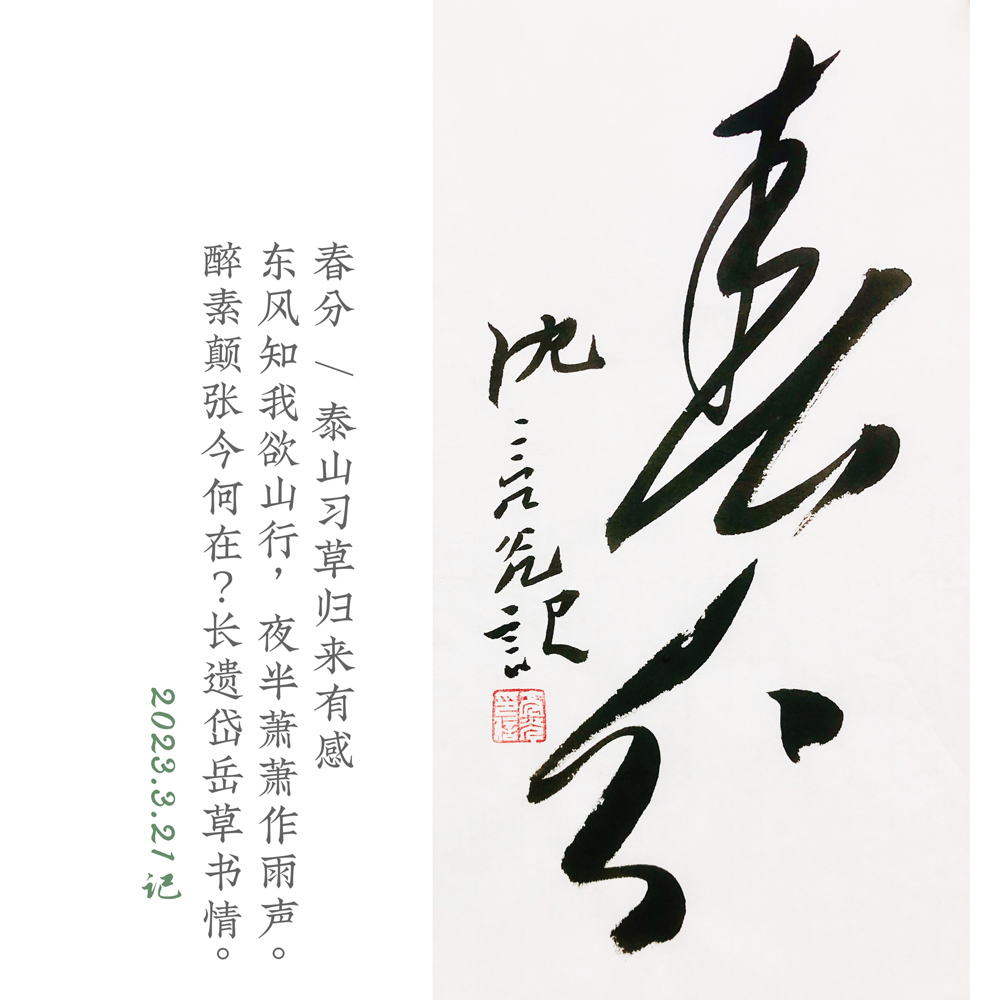 春分
沈
記
春分 / 泰山习草归来有感
东风知我欲山行，夜半萧萧作雨声。
醉素颠张今何在？长遗岱岳草书情。
2023.3.21记